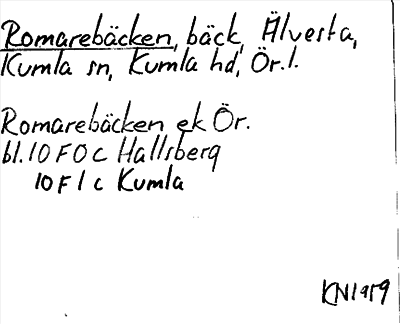 Romarebäcken, bäck, Älvesta,
Kumla sn, Kumla hd, Ör.l.
Romarebäcken ek Ör.
bl.10 F 0 c Hallsberg
10 F 1 c Kumla
KN1959